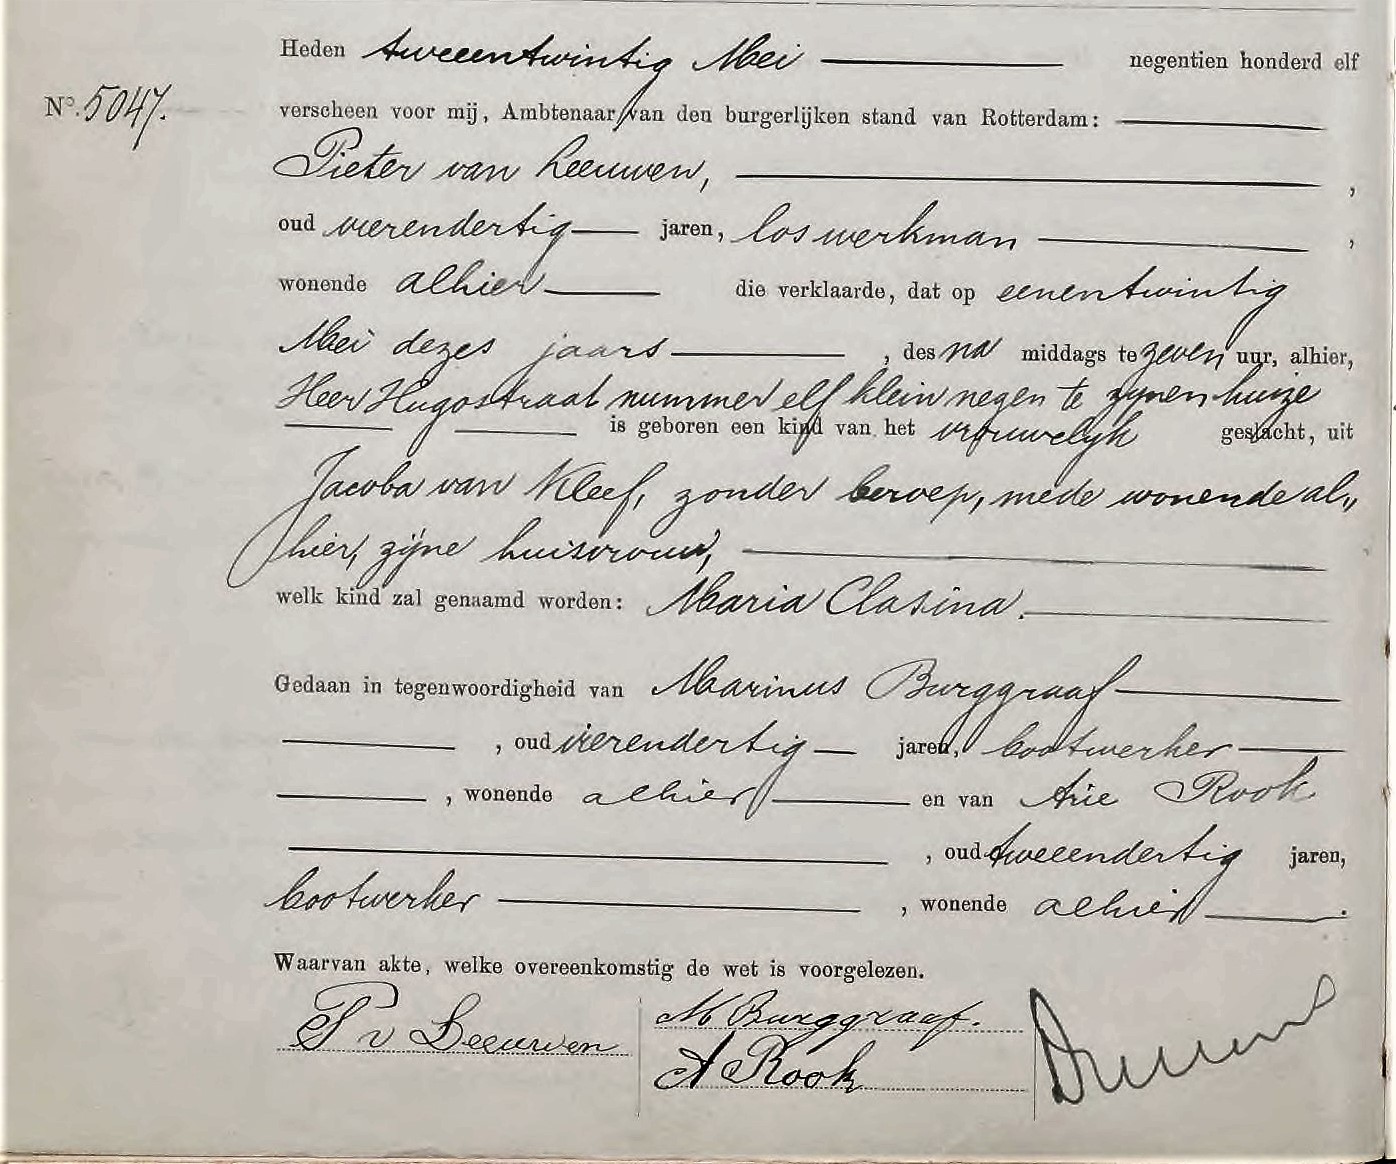 Heden tweeentwintig Mei negentien honderd elf
No. 5047. verscheen voor mij, Ambtenaar van den burgerlijken stand van Rotterdam:
Pieter van Leeuwen, ,
oud vierendertig jaren, los werkman ,
wonende alhier die verklaarde, dat op eenentwintig
Mei dezes jaars , des na middags te zeven uur, alhier,
Heer Hugostraat nummer elf klein negen te zijnen huize
is geboren een kind van het vrouwelijk geslacht, uit
Jacoba van Kleef, zonder beroep, mede wonende al„
hier, zijne huisvrouw,
welk kind zal genaamd worden: Maria Clasina.
Gedaan in tegenwoordigheid van Marinus Burggraaf
, oud vierendertig jaren, bootwerker
, wonende alhier en van Arie Rook
, oud tweeendertig jaren,
bootwerker , wonende alhier .
Waarvan akte, welke overeenkomstig de wet is voorgelezen.
P v Leeuwen
M Burggraaf.
A Rook